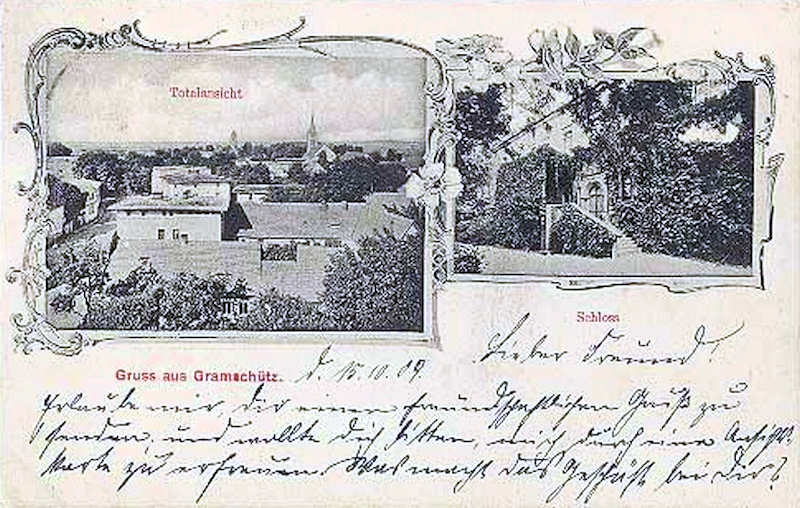 Totalansicht
Schloss
Gruss aus Gramschütz.
d. 15.10.09
Lieber Freund!
Erlaube mir, dir einen freundschaftlichen Gruß zu
senden, und wollte dich bitten, mich durch eine Ansichts-
karte zu erfreuen. Was macht das Geschäft bei Dir?